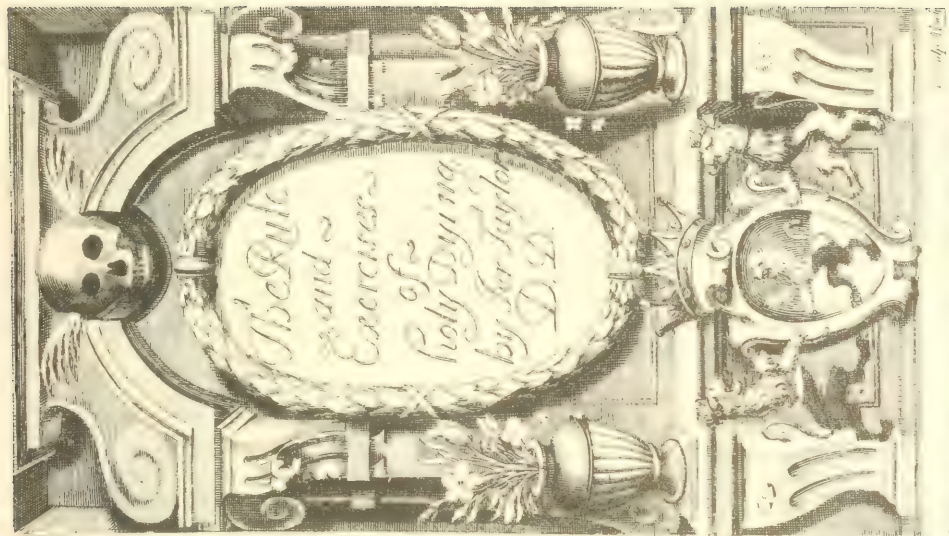 The Rule
and ~
Exercises
of ~
holy Dying
by Jer Taylor
D. D.